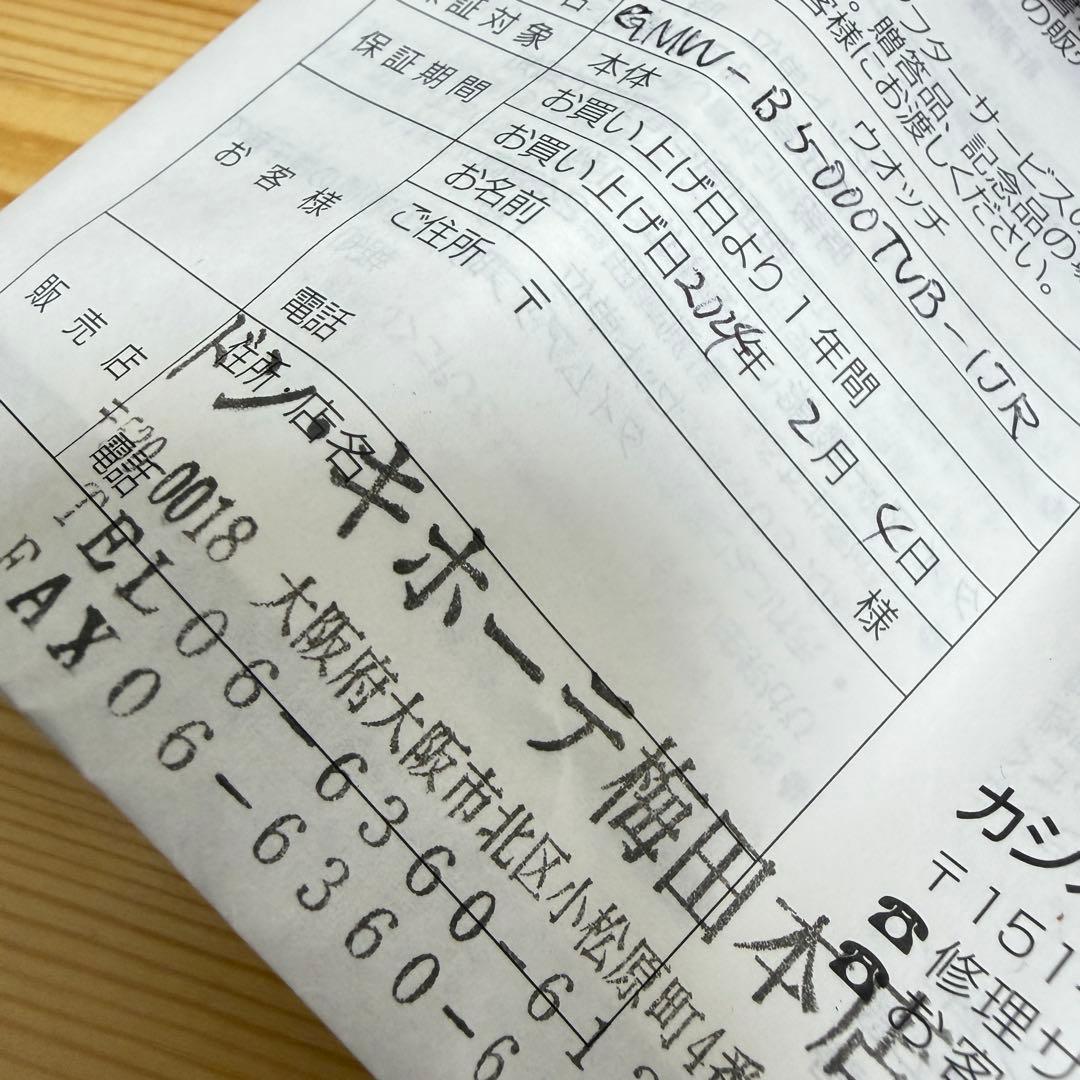 GMW-B5000TVB-1JR
証対象 本体 ウオッチ
保証期間 お買い上げ日より1年間
お買い上げ日2024年 2月 4日
お客様 お名前 様
ご住所 〒
電話
販売店 住所・店名
電話
ドン・キホーテ梅田本店
0018 大阪府大阪市北区小松原町4番
TEL06-6360-61
FAX06-6360-6
フターサービス
。贈答品、記念品の
客様にお渡しください。
の販
カシ
〒151
修理サ
お客